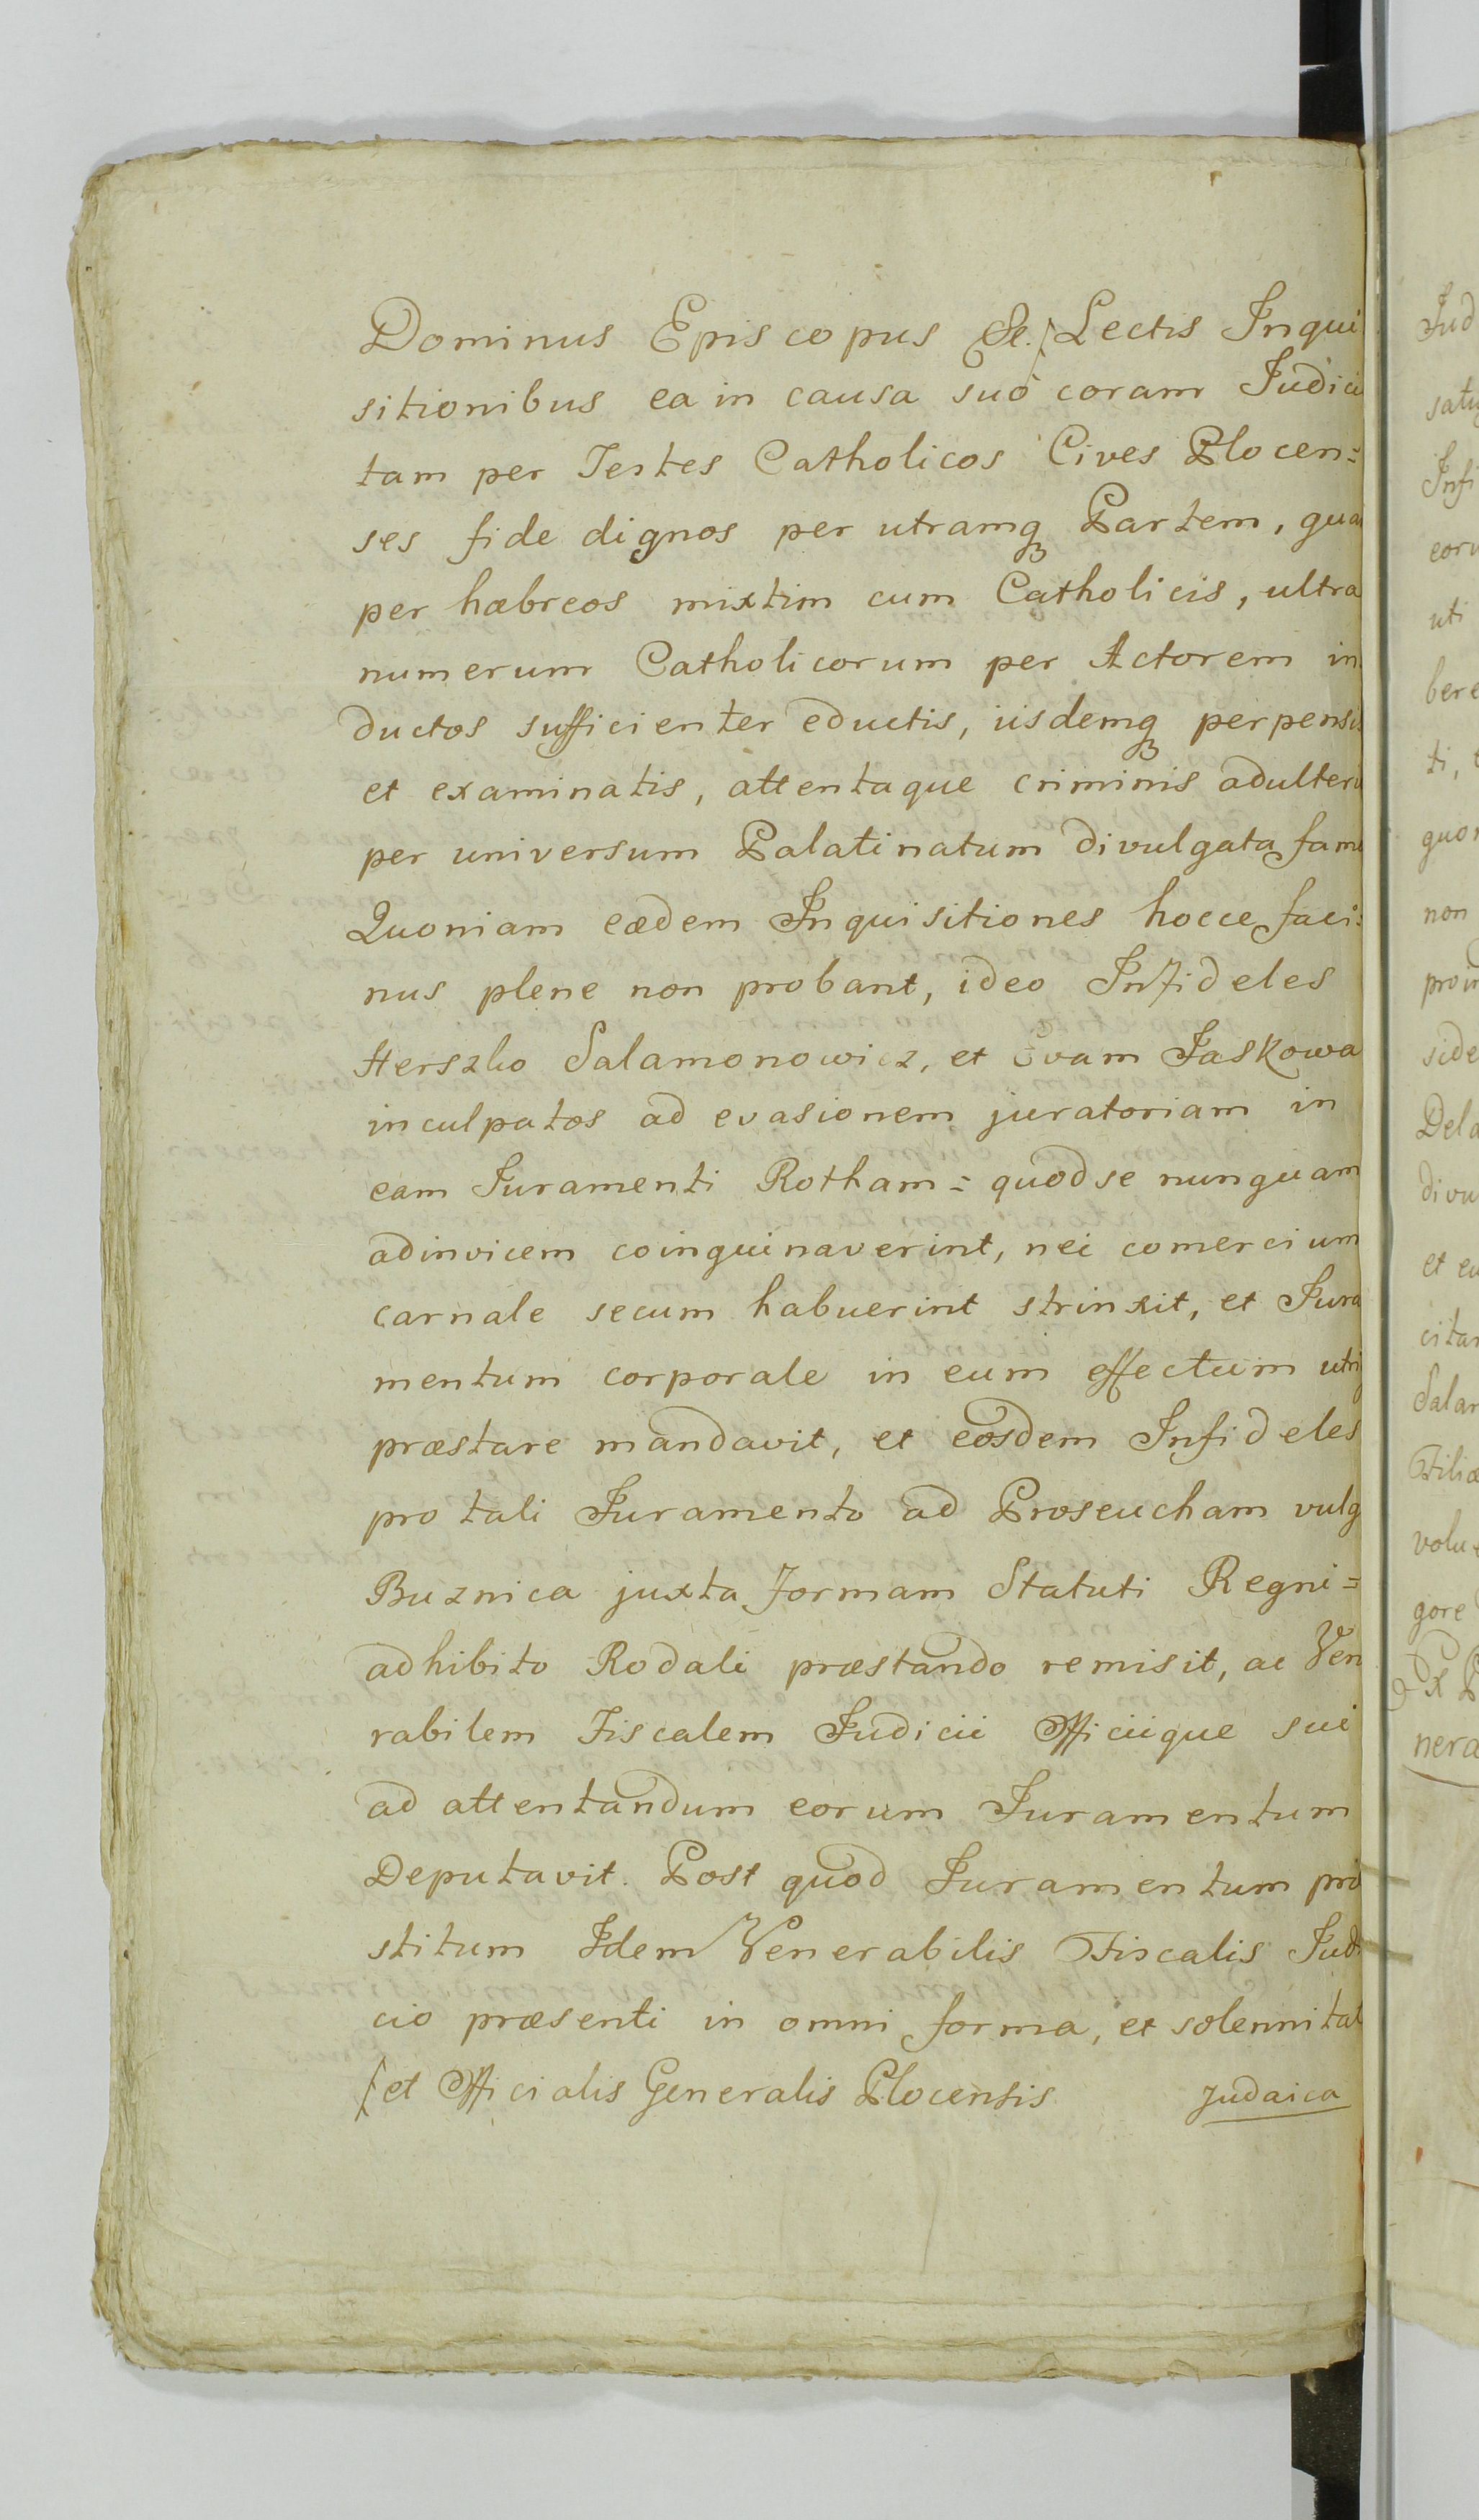 Dominus Episcopus &c. / Lectis Inqui
sitionibus ea in causa suo coram Iudici
tam per Testes Catholicos Cives Plocen=
ses fide dignos per utramq3 Partem, qua
per hæbreos mixtim cum Catholicis, ultra
numerum Catholicorum per Actorem in
ductos sufficienter eductis, iisdemq3 perpensis
et examinatis, attentaque criminis adulterii
per universum Palatinatum divulgata fama
Quoniam eædem Inquisitiones hocce faci:
nus plene non probant, ideo Infideles
Herszko Salamonowicz, et Evam Jaskowa
inculpatos ad evasionem juratoriam in
eam Juramenti Rotham = quod se nunquam
adinvicem coinquinaverint, nec comercium
carnale secum habuerint strinxit, et Jura
mentum corporale in eum effectum utriq
præstare mandavit, et eosdem Infideles
pro tali Juramento ad Proseucham vulg
Buznica juxta formam Statuti Regni =
adhibito Rodali præstando remisit, ac Ven
rabilem Fiscalem Judicii Officiique sui
ad attentandum eorum Juramentum
Deputavit. Post quod Juramentum præ
stitum Idem Venerabilis Fiscalis Judi
cio præsenti in omni forma, et solennitat
/ et Officialis Generalis Plocensis
Judaica
Jud
satu
Infi
eoru
uti
bere
ti,
quor
non
proin
side
Dela
divu
et eu
citar
Salar
Filiæ
volu
gore
Ex P
nera